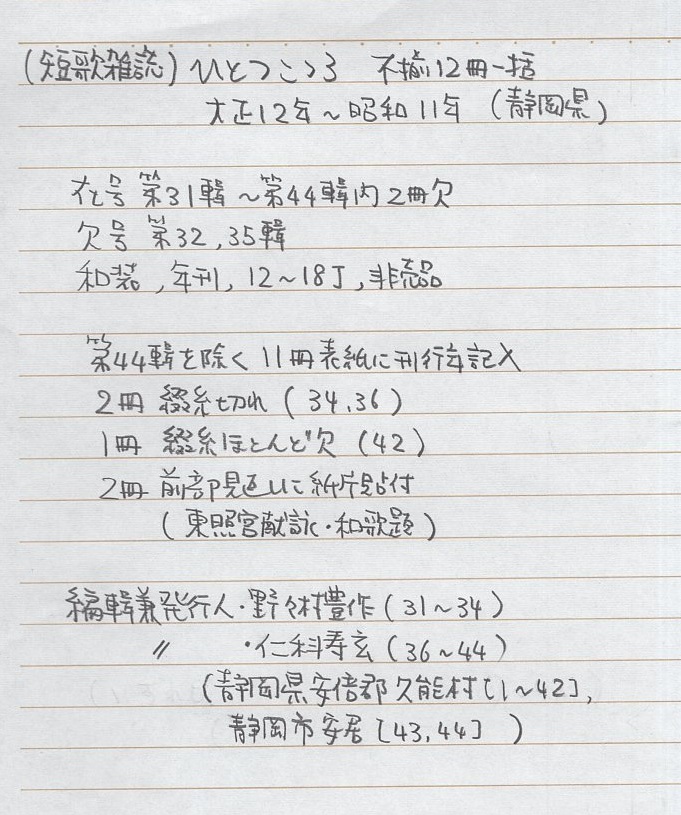 (短歌雑誌) ひとつこゝろ 不揃12冊一括
大正12年～昭和11年 (静岡県)
在号 第31輯～第44輯内2冊欠
欠号 第32,35輯
和装,年刊,12～18丁,非売品
第44輯を除く11冊表紙に刊行年記入
2冊 綴糸切れ (34,36)
1冊 綴糸ほとんど欠 (42)
2冊 前部見返しに紙片貼付
(東照宮献詠・和歌題)
編輯兼発行人・野々村豊作 (31～34)
〃 ・仁科寿玄 (36～44)
(静岡県安倍郡久能村[1～42],
静岡市安居[43,44])